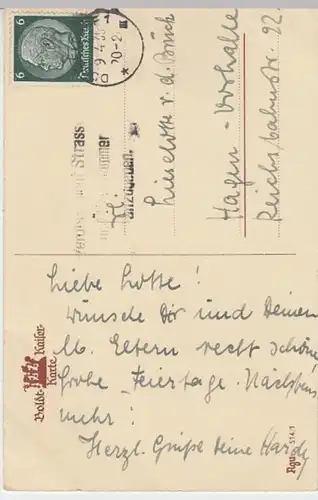 6 Deutsches Reich 6
9.4.38
20-2
Strasse
nummer
anzugeben.
Frl.
Lieselotte v. d. Brück
Hagen-Vorhalle
Reichsbahnstr. 92.
Liebe Lotte!
Wünsche Dir und Deinen
lb. Eltern recht schöne
frohe Feiertage. Nächstens
mehr!
Herzl. Grüße Deine
Boldt-Kaiser-
Karte
Agu 514/1